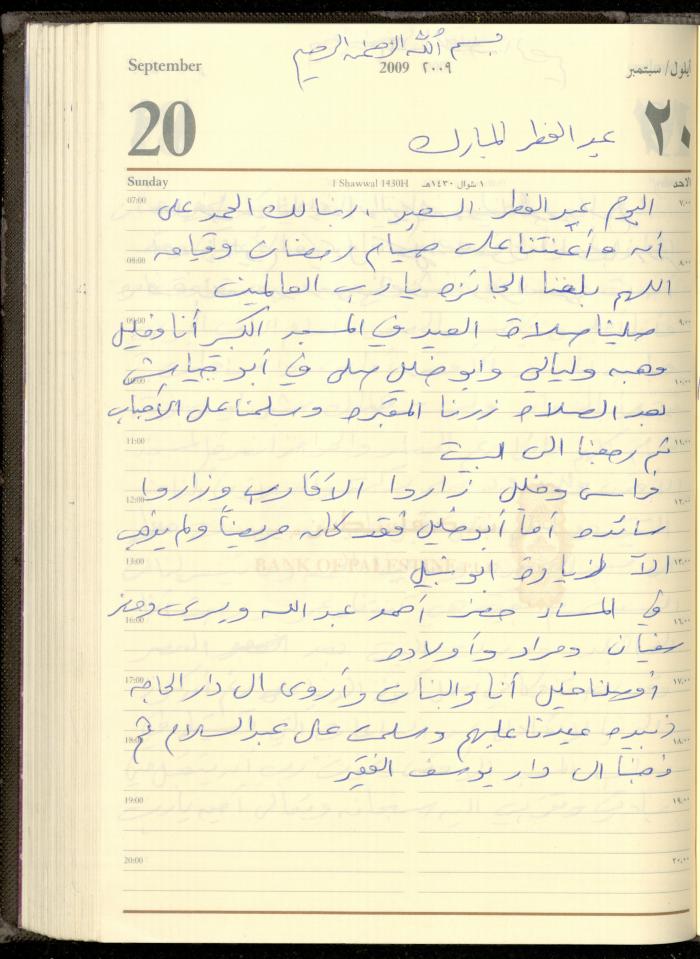 بسم الله الرحمن الرحيم
September 2009 ٢٠٠٩ أيلول/ سبتمبر
20 ٢٠
عيد الفطر المبارك
Sunday 1 Shawwal 1430H ١ شوال ١٤٣٠هـ الاحد
07:00 اليوم عيد الفطر السعيد. ربنا لك الحمد على ٧،٠٠
أنه وأعنتنا على صيام رمضان وقيامه
08:00 اللهم بلغنا الجائزه يا رب العالمين ٨،٠٠
09:00 صلينا صلاة العيد في المسجد الكبير أنا وخليل ٩،٠٠
وهبه وليالي وابو خليل صلى في أبو
10:00 ١٠،٠٠
بعد الصلاه زرنا المقبره وسلمنا على الأحباب
11:00 ثم رجعنا الى البيت ١١،٠٠
فراس وخليل زاروا الأقارب وزاروا
12:00 سائده أما أبو خليل فقد كان مريضاً ولم ١٢،٠٠
13:00 الآ لزيارة ابو نبيل ١٣،٠٠
BANK OF PALESTINE
في المساء حضر أحمد عبد الله ويسرى وحضر
16:00 سفيان ومراد وأولاده ١٦،٠٠
17:00 أوصلنا خليل أنا والبنات وأروى ال دار الحاجه ١٧،٠٠
زبيده عيدنا عليهم وسلمت على عبد السلام ثم
18:00 ذهبنا ال دار يوسف الفقير ١٨،٠٠
19:00 ١٩،٠٠
20:00 ٢٠،٠٠